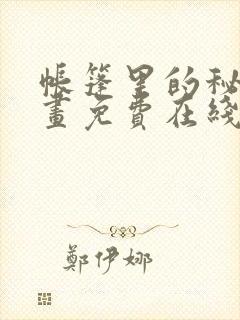 帳篷里的秘
畫免費在綫
鄭伊娜